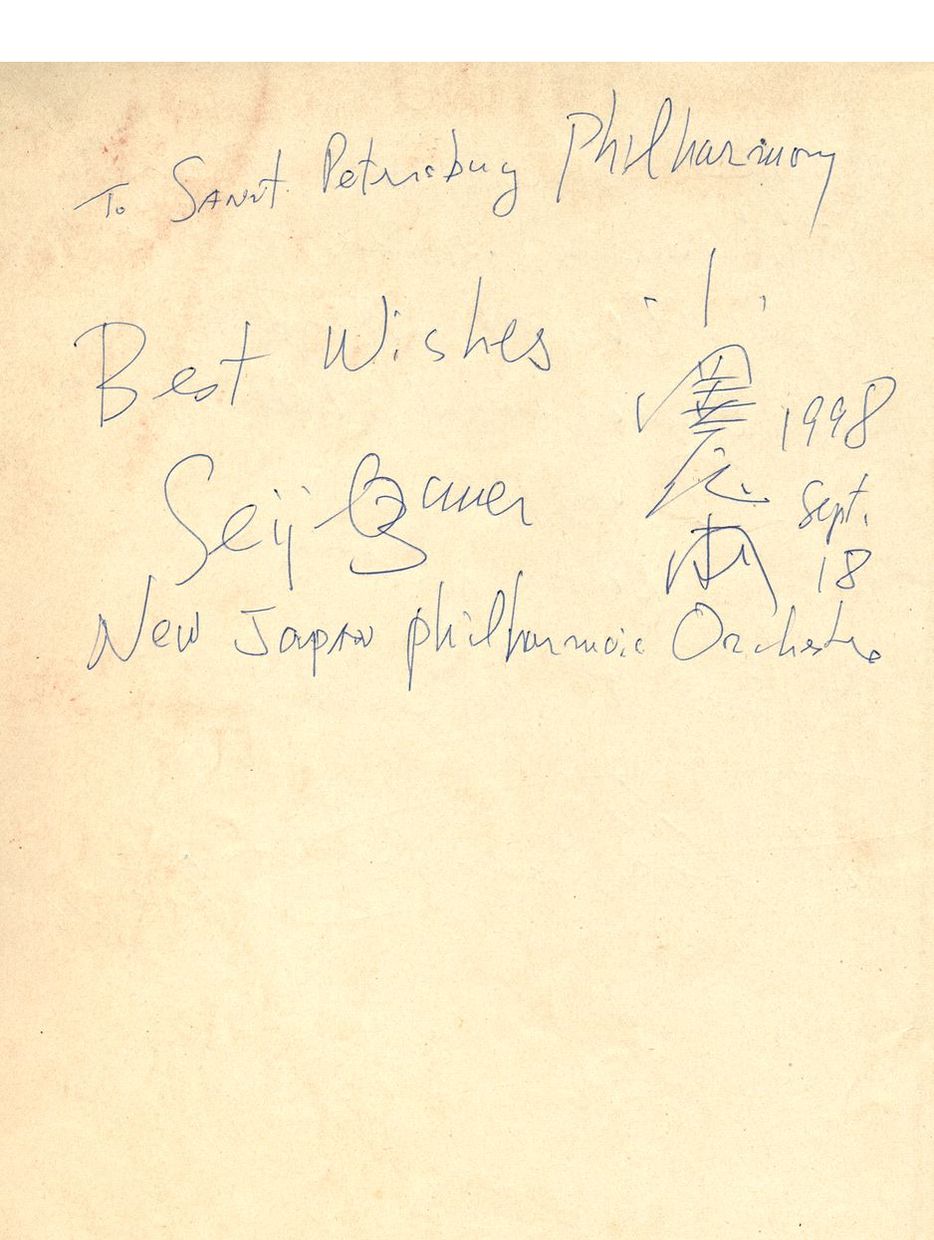 To Sankt Petersburg Philharmony
Best Wishes
Seiji Ozawa
New Japan Philharmonic Orchestra
小澤征爾
1998
Sept.
18